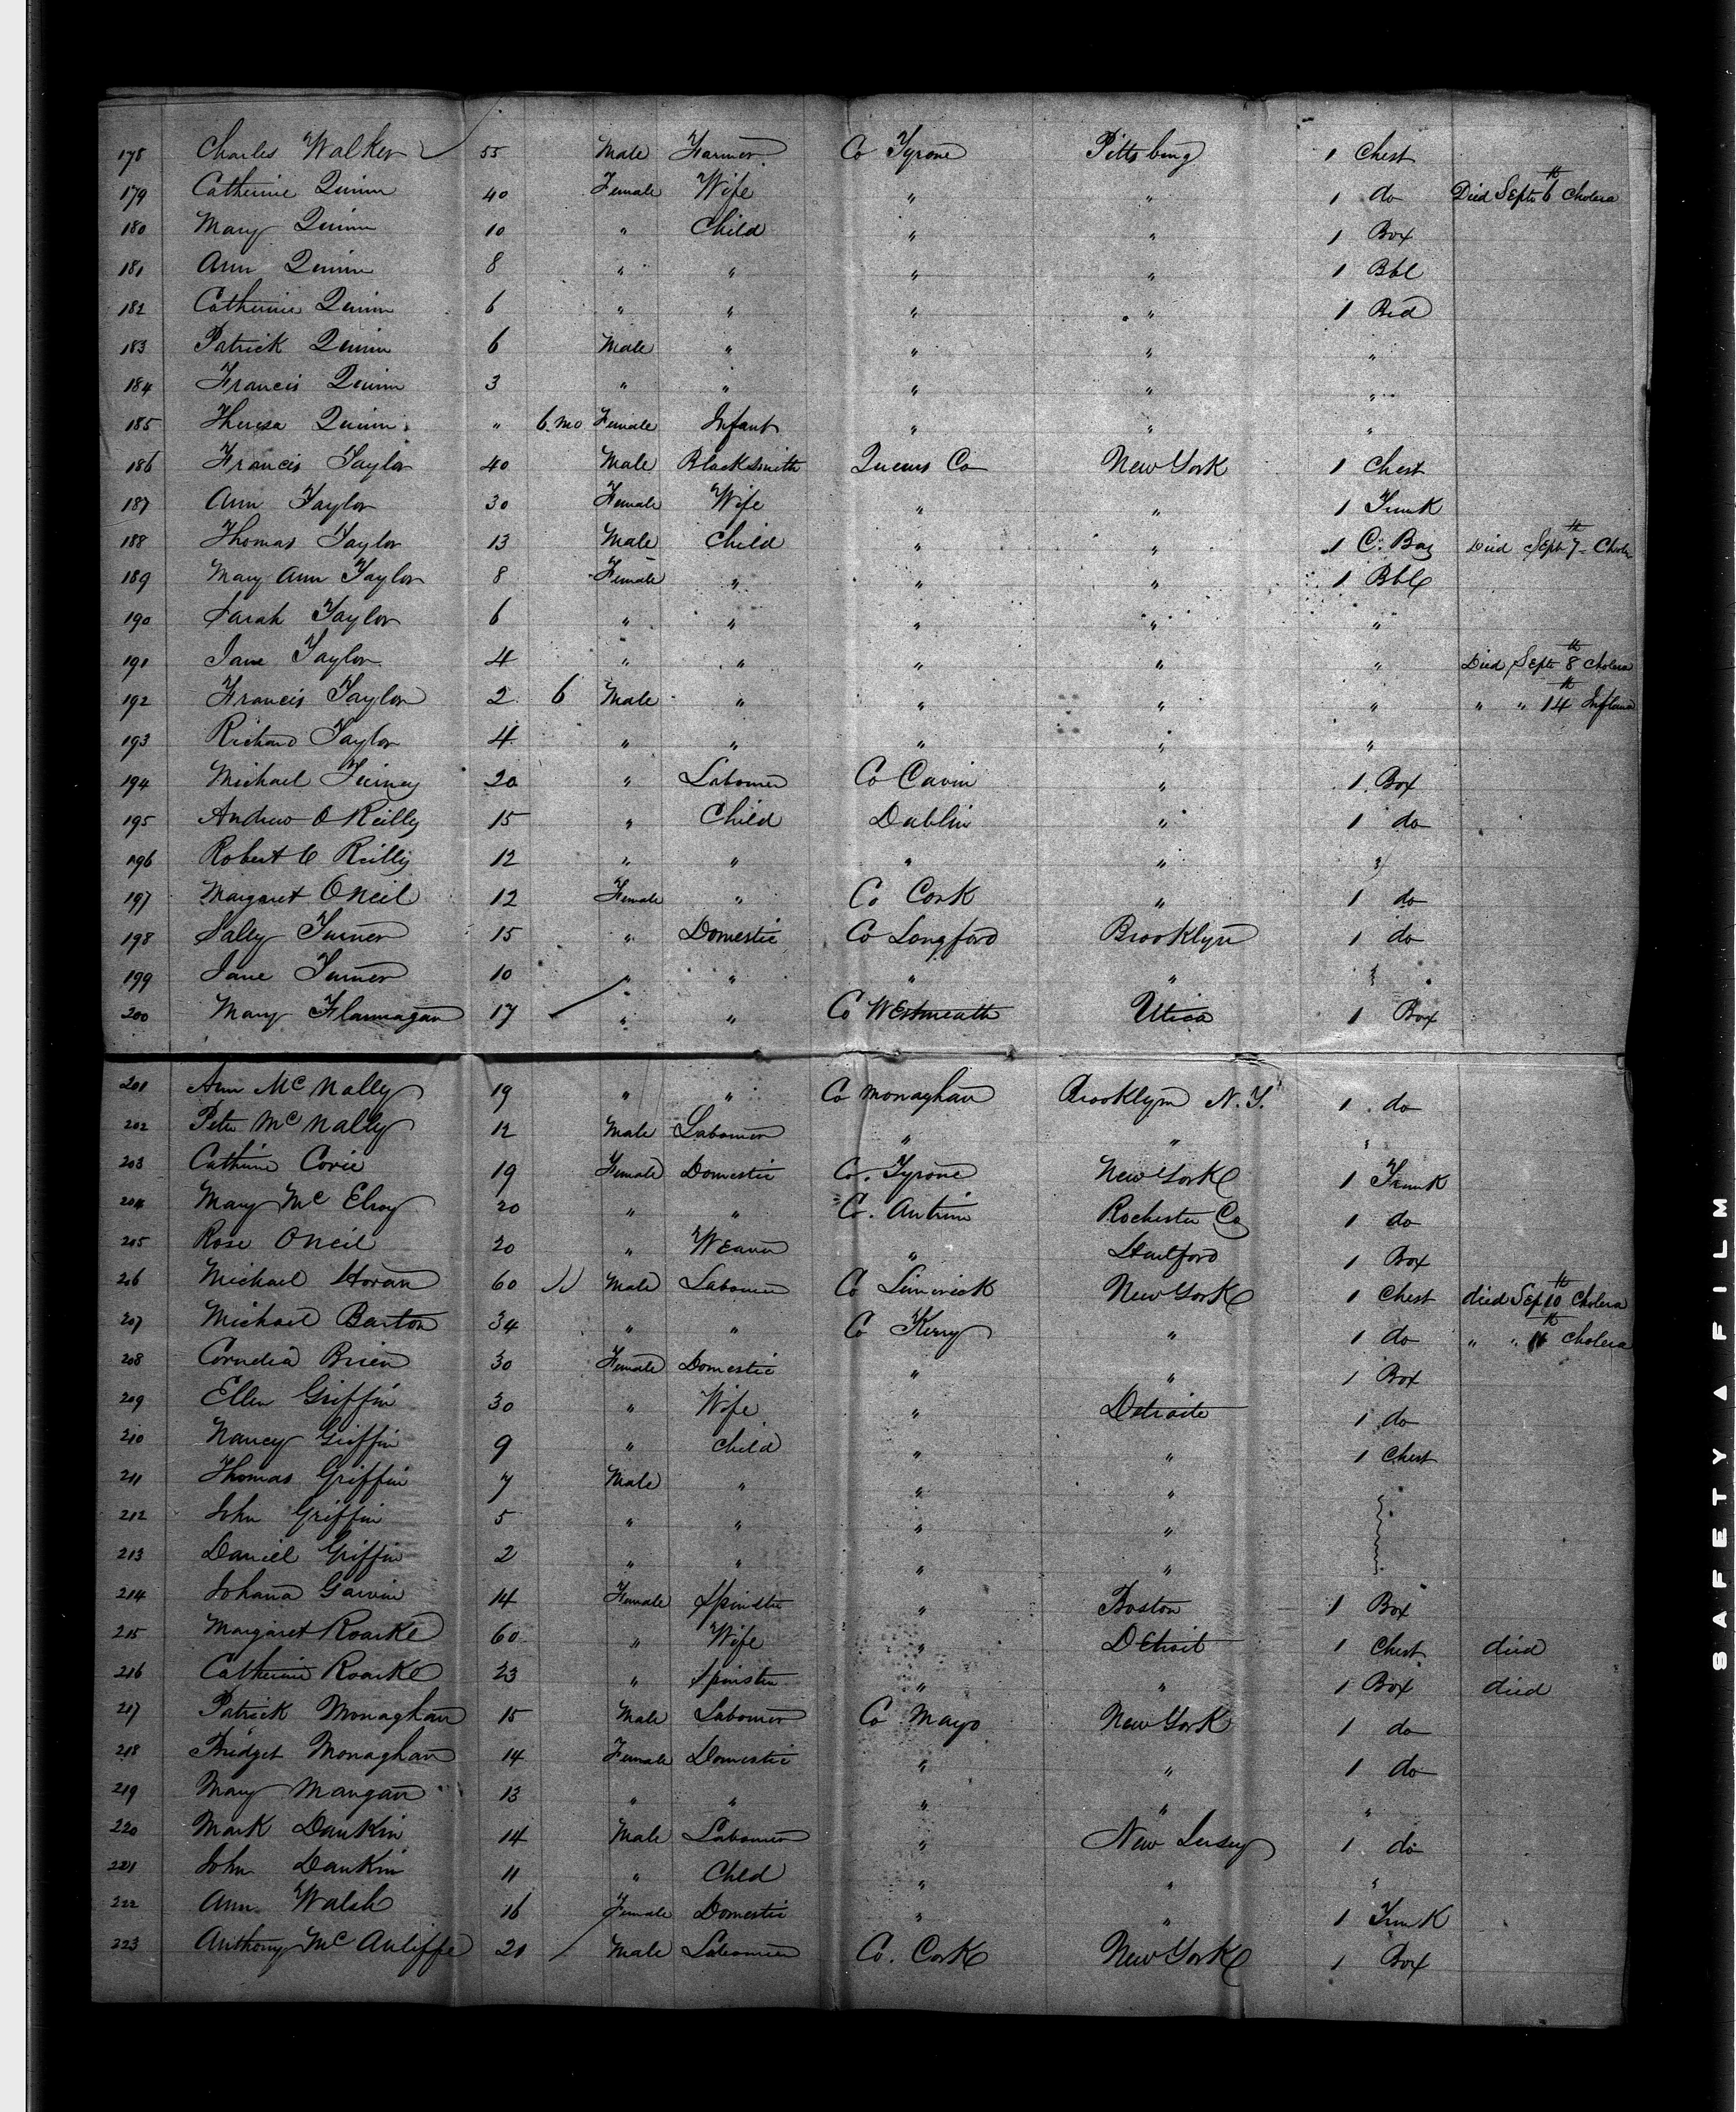 178 Charles Walker 55 Male Farmer Co Tyrone Pittsburg 1 Chest
179 Catherine Quinn 40 Female Wife " " 1 do Died Septr 6th Cholera
180 Mary Quinn 10 " Child " " 1 Box
181 Ann Quinn 8 " " " " 1 Bbl
182 Catherine Quinn 6 " " " " 1 Bed
183 Patrick Quinn 6 Male " " " "
184 Francis Quinn 3 " " " " "
185 Theresa Quinn " 6.mo Female Infant " " "
186 Francis Taylor 40 Male Blacksmith Queens Co New York 1 Chest
187 Ann Taylor 30 Female Wife " " 1 Trunk
188 Thomas Taylor 13 Male Child " " 1 C. Bag Died Sept 7th Choler
189 Mary Ann Taylor 8 Female " " " 1 Bbl
190 Sarah Taylor 6 " " " " "
191 Jane Taylor 4 " " " " " Died Septr 8th Cholera
192 Francis Taylor 2 6 Male " " " " " " 14th
193 Richard Taylor 4 " " " " "
194 Michael 20 " Labourer Co Cavin " 1 Box
195 Andrew O Reilly 15 " Child Dublin " 1 do
196 Robert O Reilly 12 " " " " "
197 Margaret ONeil 12 Female " Co Cork " 1 do
198 Sally Turner 15 " Domestic Co Longford Brooklyn 1 do
199 Jane Turner 10 " " " "
200 Mary Flannagan 17 " " Co Westmeath Utica 1 Box
201 Ann McNally 19 " " Co Monaghan Brooklyn N.Y. 1 do
202 Peter McNally 12 Male Labourer " "
203 Cathrine Corie 19 Female Domestic Co. Tyrone New York 1 Trunk
204 Mary McElroy 20 " " Co. Antrim Rochester Co 1 do
205 Rose ONeil 20 " Weaver " Hartford 1 Box
206 Michael Horan 60 Male Labourer Co Limerick New York 1 Chest died Sep 10th Cholera
207 Michael Barton 34 " " Co Kerry " 1 do " " 11th Cholera
208 Cornelia Brien 30 Female Domestic " " 1 Box
209 Ellen Griffin 30 " Wife " Detroite 1 do
210 Nancy Griffin 9 " Child " " 1 Chest
211 Thomas Griffin 7 Male " " "
212 John Griffin 5 " " " "
213 Daniel Griffin 2 " " " "
214 Johana Garvin 14 Female Spinster " Boston 1 Box
215 Margaret Roarke 60 " Wife " Detroit 1 Chest died
216 Catherine Roarke 23 " Spinster " " 1 Box died
217 Patrick Monaghan 15 Male Labourer Co Mayo New York 1 do
218 Bridget Monaghan 14 Female Domestic " " 1 do
219 Mary Mangan 13 " " " " "
220 Mark Dankin 14 Male Labourer " New Jersey 1 do
221 John Dankin 11 " Chld " " "
222 Ann Walsh 16 Female Domestic " " 1 Trunk
223 Anthony McAuliffe 21 Male Labourer Co. Cork New York 1 Box
SAFETY FILM